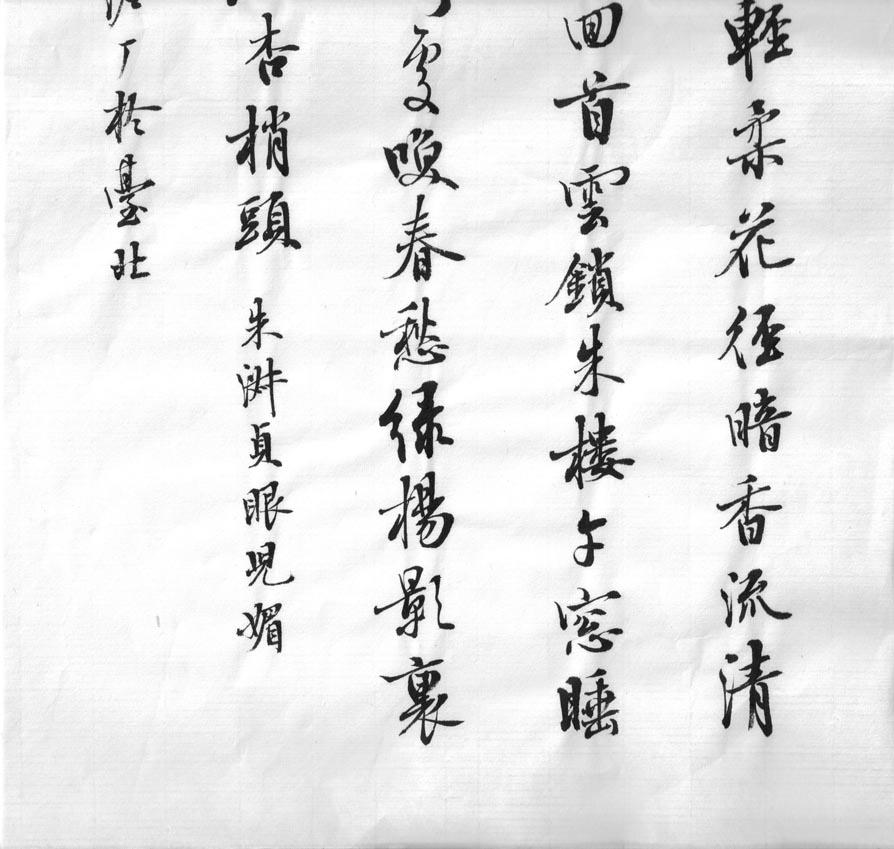 輕柔花徑暗香流清
回首雲鎖朱樓午窓睡
處喚春愁綠楊影裏
杏梢頭 朱淑貞眼児媚
於臺北